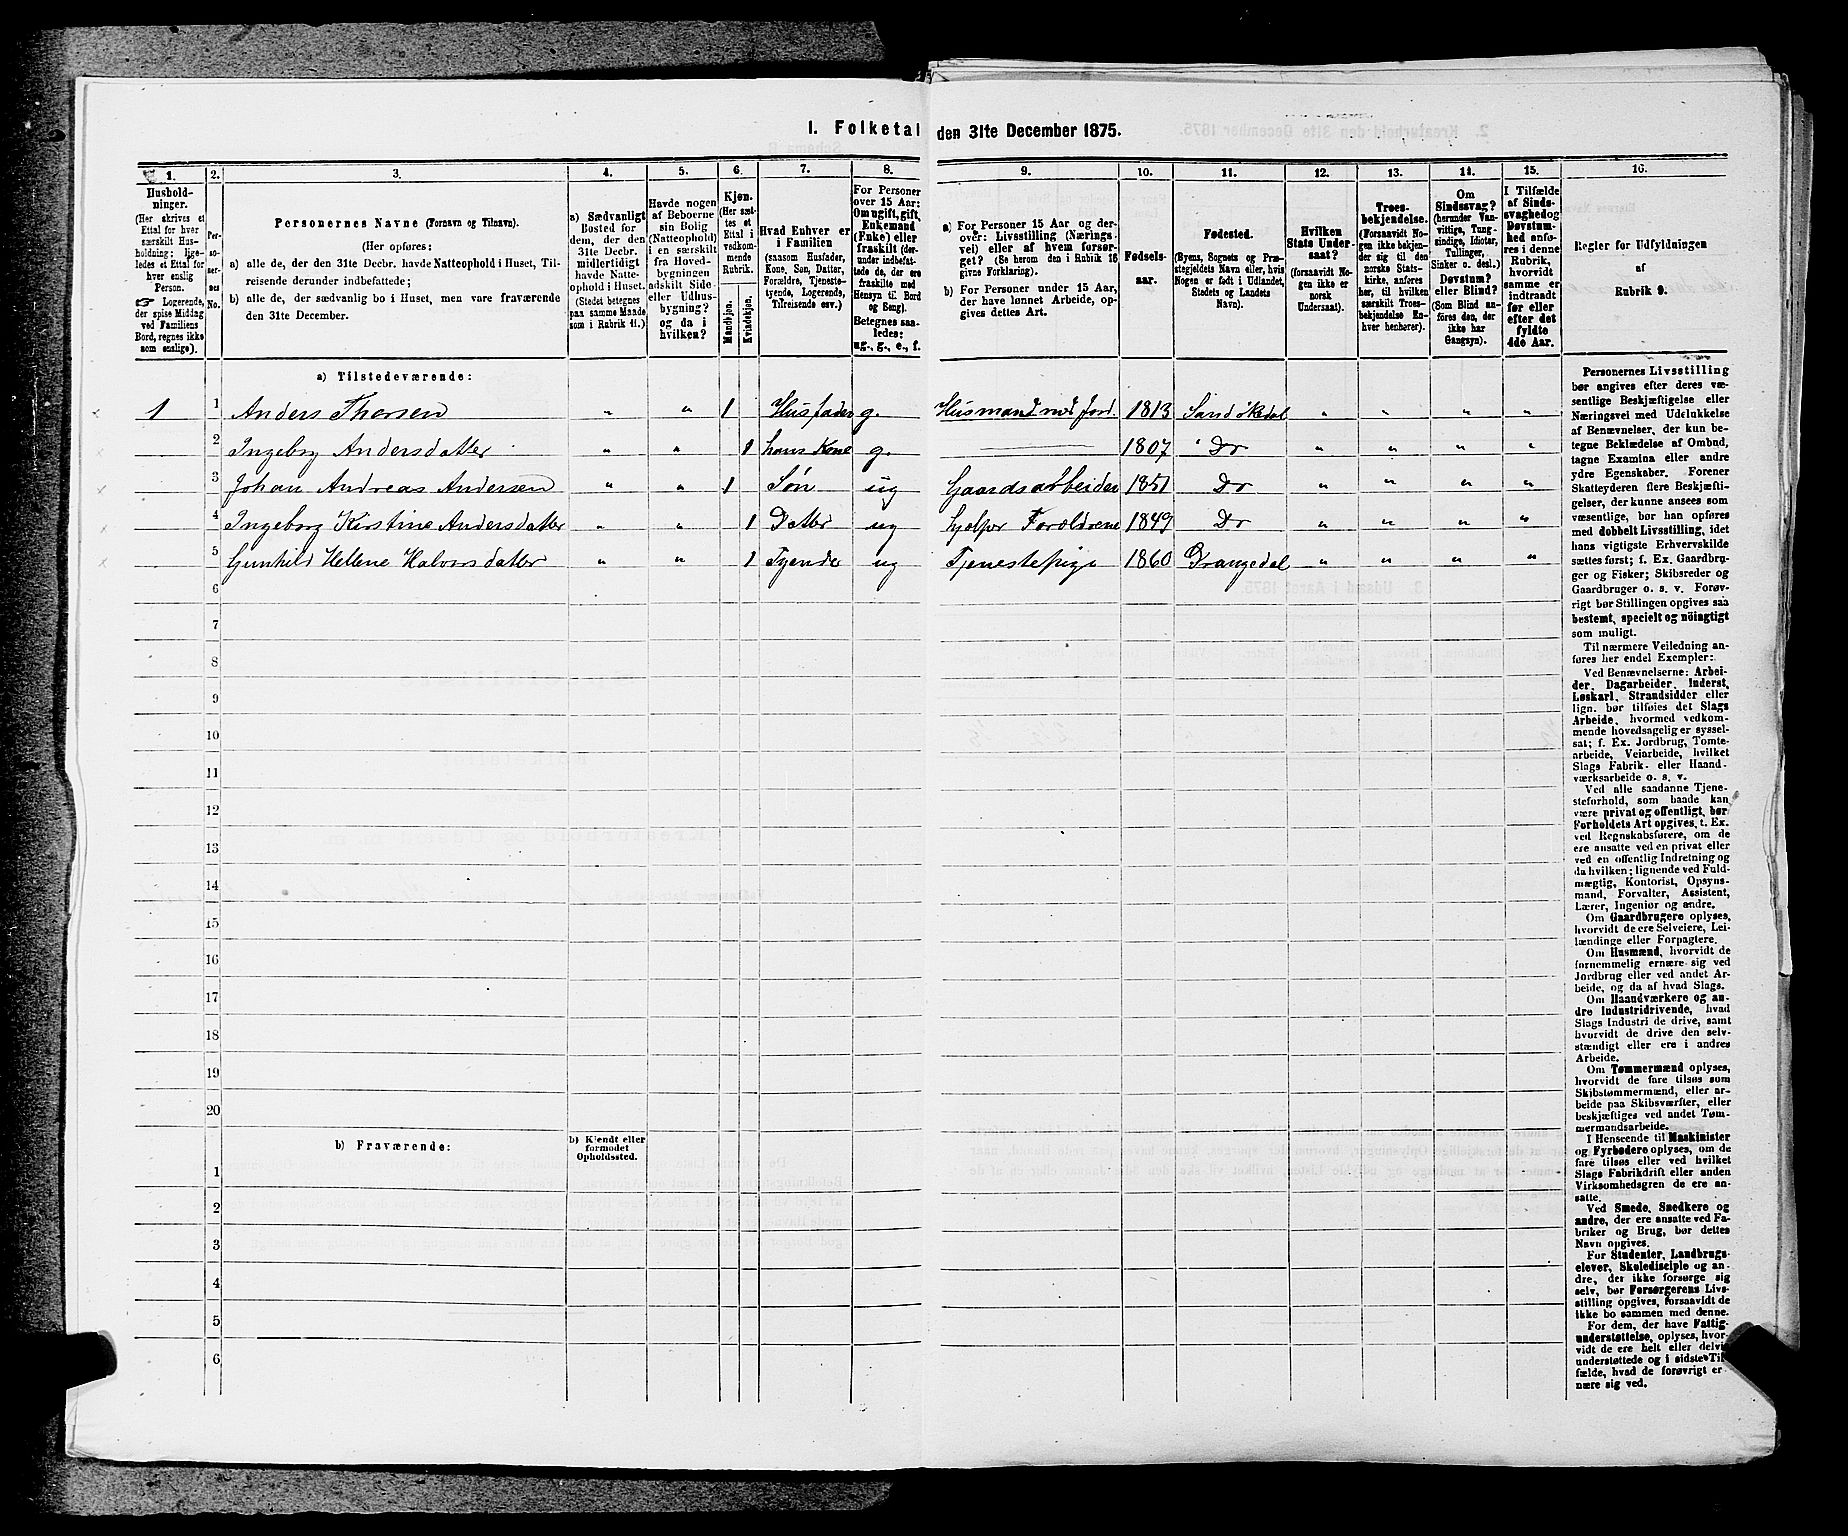 1. Folketal den 31te December 1875.
1. 2. 3. 4. 5. 6. 7. 8. 9. 10. 11. 12. 13. 14. 15. 16.
Husholdninger.
(Her skrives et
Ettal for hver
særskilt Husholdning;
ligeledes et Ettal for
hver enslig
Person.
☞ Logerende,
der spise Middag
ved Familiens
Bord, regnes ikke
som enslige).
Personernes No.
Personernes Navne (Fornavn og Tilnavn).
(Her opføres:
a) alle de, der den 31te Decbr. havde Natteophold i Huset, Tilreisende derunder indbefattede;
b) alle de, der sædvanlig bo i Huset, men vare fraværende
den 31te December.
a) Sædvanligt
Bosted for
dem, der den
31te Decbr.
midlertidigt
havde Natteophold i Huset.
(Stedet betegnes
paa samme Maade
som i Rubrik 11.)
Havde nogen
af Beboerne
sin Bolig
(Natteophold)
i en særskilt
fra Hovedbygningen
adskilt Side-
eller Udhusbygning?
og da i
hvilken?
Kjøn.
(Her sættes et
Ettal i
vedkommende
Rubrik.
Mandkjøn.
Kvindekjøn.
Hvad Enhver er
i Familien
(saasom Husfader,
Kone, Søn, Datter,
Forældre, Tjenestetyende, Logerende,
Tilreisende osv.)
For Personer
over 15 Aar:
Om ugift, gift,
Enkemand
(Enke) eller
fraskilt (derunder indbefattede de, der ere
fraskilte med
Hensyn til Bord
og Seng).
Betegnes saaledes:
ug., g., e., f.
a) For Personer 15 Aar og derover: Livsstilling (Næringsvei) eller af hvem forsørget? (Se herom den i Rubrik 16
givne Forklaring).
b) For Personer under 15 Aar,
der have lønnet Arbeide, opgives dettes Art.
Fødselsaar.
Fødested.
(Byens, Sognets og Præstegjeldets Navn eller, hvis
Nogen er født i Udlandet,
Stedets og Landets
Navn).
Hvilken
Stats Undersaat?
(forsaavidt Nogen ikke er
norsk
Undersaat).
Troesbekjendelse.
(Forsaavidt Nogen ikke bekjender sig til den
norske Statskirke, anføres
her, til hvilken
særskilt Troesbekjendelse Enhver henhører).
Om
Sindssvag?
(herunder Vanvittige, Tungsindige, Idioter,
Tullinger,
Sinker o. desl.)
Døvstum?
eller Blind?
(Som Blind anføres den, der
ikke har
Gangsyn).
I Tilfælde
af Sindssvaghed og
Døvstumhed anføres i denne
Rubrik,
hvorvidt
samme er
indtraadt
før eller
efter det
fyldte
4de Aar.
Regler for Udfyldningen
af
Rubrik 9.
a) Tilstedeværende:
1 1 Anders Thorsen " " 1 Husfader g. Husmand med Jord 1813 Sandøkedal " " " "
2 Ingeborg Andersdatter " " 1 hans Kone g. — 1807 Do " " " "
3 Johan Andreas Andersen " " 1 Søn ug Gaardsarbeider 1851 Do " " " "
4 Ingeborg Kirstine Andersdatter " " 1 Datter ug hjelper Forældrene 1849 Do " " " "
5 Gunhild Hellene Halvorsdatter " " 1 Tyende ug Tjenestepige 1860 Drangedal " " " "
6
7
8
9
10
11
12
13
14
15
16
17
18
19
20
b) Fraværende:
b) Kjendt eller
formodet
Opholdssted.
1
2
3
4
5
6
Personernes Livsstilling
bør angives efter deres væsentlige Beskjæftigelse eller
Næringsvei med Udelukkelse
af Benævnelser, der kun betegne Beklædelse af Ombud,
tagne Examina eller andre
ydre Egenskaber. Forener
Skatteyderen flere Beskjæftigelser, der kunne ansees som
væsentlige, bør han opføres
med dobbelt Livsstilling, idet
hans vigtigste Erhvervskilde
sættes først; f. Ex. Gaardbruger og Fisker; Skibsreder og
Gaardbruger o. s. v. Forøvrigt bør Stillingen opgives saa
bestemt, specielt og nöiagtigt
som muligt.
Til nærmere Veiledning anføres her endel Exempler:
Ved Benævnelserne: Arbeider, Dagarbeider, Inderst,
Løskarl, Strandsidder eller
lign. bør tilføies det Slags
Arbeide, hvormed vedkommende hovedsagelig er sysselsat; f. Ex. Jordbrug, Tomtearbeide, Veiarbeide, hvilket
Slags Fabrik- eller Haandværksarbeide o. s. v.
Ved alle saadanne Tjenesteforhold, som baade kan
være privat og offentligt, bør
Forholdets Art opgives, t. Ex.
ved Regnskabsførere, om de
ere ansatte ved en privat eller
ved en offentlig Indretning og
da hvilken; lignende ved Fuldmægtig, Kontorist, Opsynsmand, Forvalter, Assistent,
Lærer, Ingeniør og andre.
Om Gaardbrugere oplyses,
hvorvidt de ere Selveiere, Leilændinge eller Forpagtere.
Om Husmænd, hvorvidt de
fornemmelig ernære sig ved
Jordbrug eller ved andet Arbeide, og da af hvad Slags.
Om Haandværkere og andre Industridrivende, hvad
Slags Industri de drive, samt
hvorvidt de drive den selvstændigt eller ere i andres
Arbeide.
Om Tømmermænd oplyses,
hvorvidt de fare tilsøs som
Skibstømmermænd, eller arbeide paa Skibsværfter, eller
beskjæftiges ved andet Tømmermandsarbeide.
I Henseende til Maskinister
og Fyrbødere oplyses, om de
fare tilsøs eller ved hvilket
Slags Fabrikdrift eller anden
Virksomhedsgren de ere ansatte.
Ved Smede, Snedkere og
andre, der ere ansatte ved Fabriker og Brug, bør dettes
Navn opgives.
For Studenter, Landbrugselever, Skoledisciple og andre, der ikke forsørge sig
selv, bør Forsørgerens Livsstilling opgives, forsaavidt de
ikke bo sammen med denne.
For dem, der have Fattigunderstøttelse, oplyses, hvorvidt de ere helt eller delvis
understøttede og i sidste Tilfælde, hvad de forøvrigt ernære sig ved.